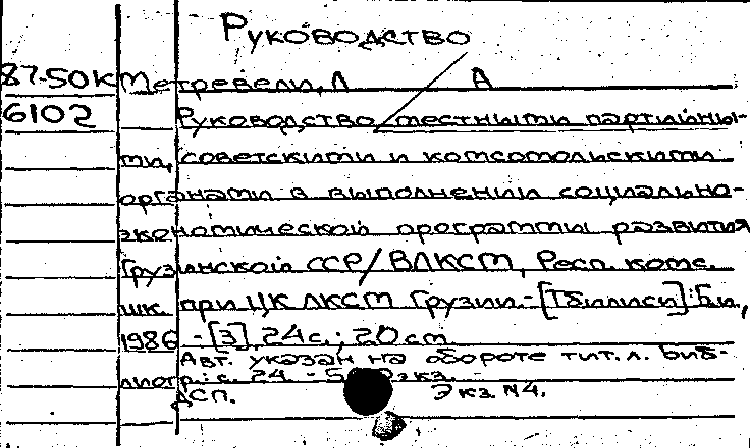 Руководство
87-50К Метревели, Л А
6102 Руководство местными партийны-
ми, советскими и комсомольскими
органами в выполнении социально-
экономической программы развития
Грузинской ССР/ВЛКСМ, Респ. комс.
шк. при ЦК ЛКСМ Грузии.-[Тбилиси]: Б.и.,
1986 -[3], 24 с.; 20 см
Авт. указан на обороте тит. л. Биб-
лиогр.: с. 24 - экз. -
ДСП. Экз. N4.